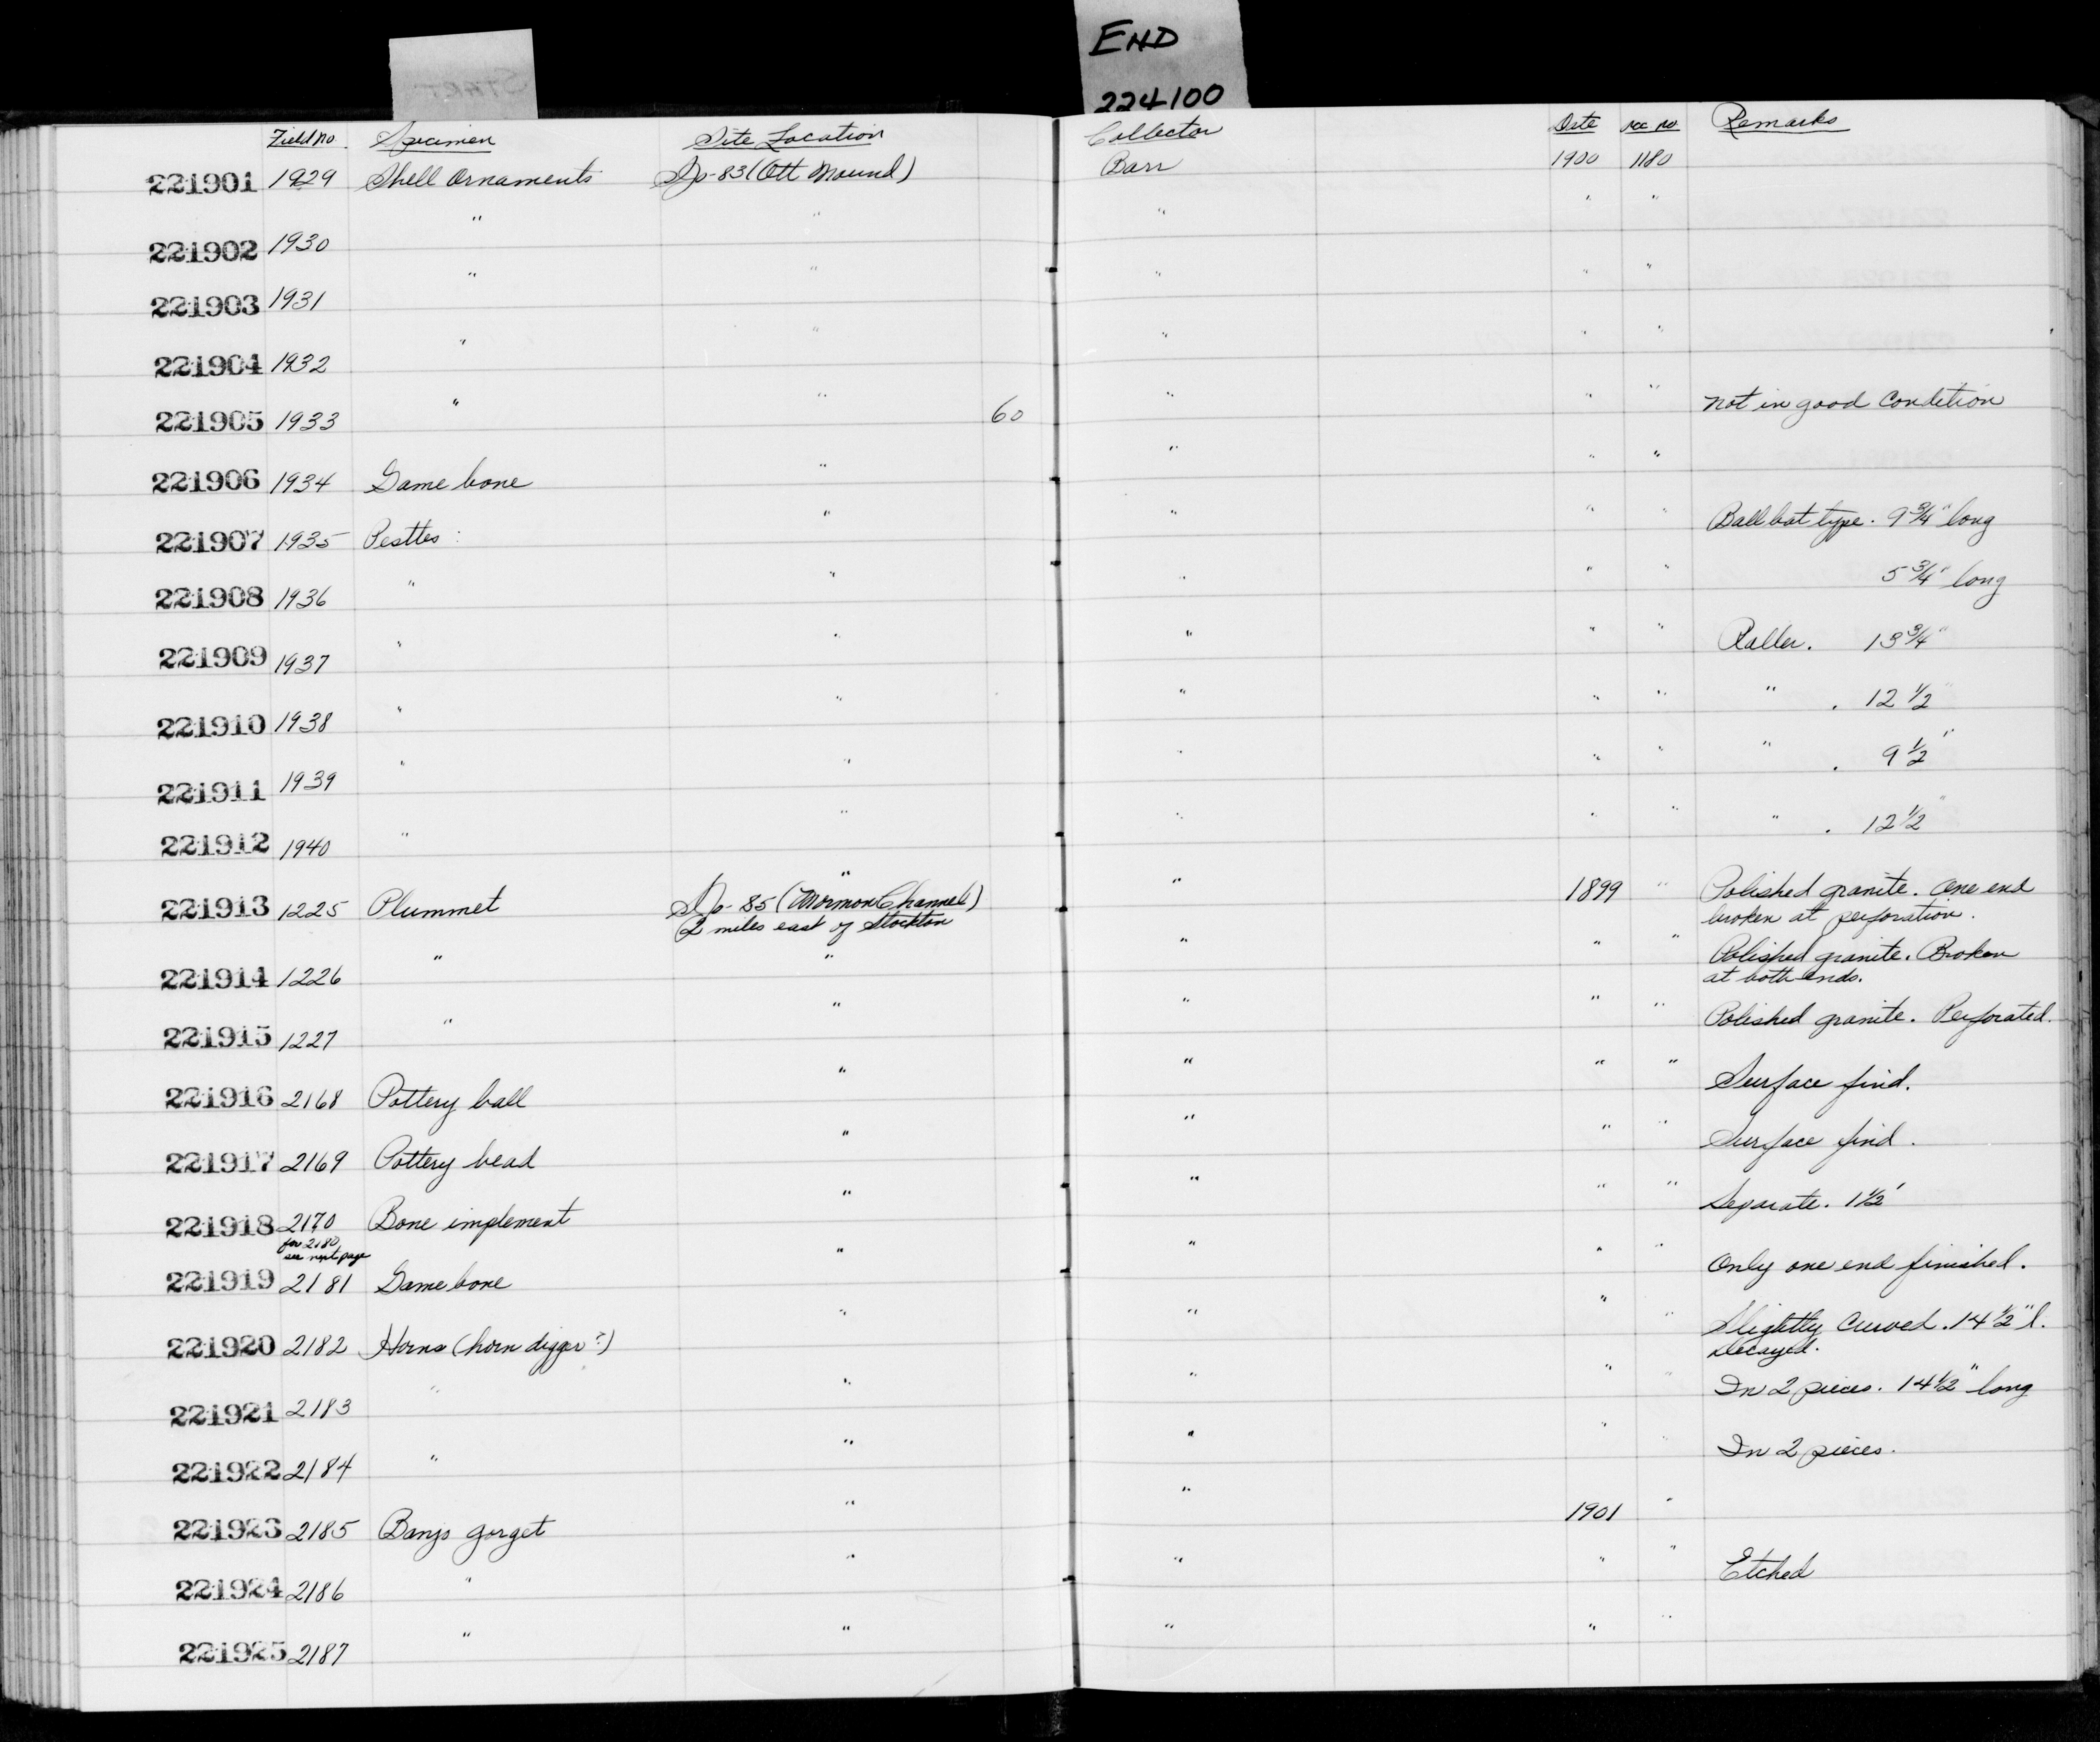 START
END
224100
Field no. Specimen Site Location Collector Date Acc no Remarks
221901 1929 Shell Ornaments SJo-83 (Ott Mound) Barr 1900 1180
221902 1930 " " " " "
221903 1931 " " " " "
221904 1932 " " " " "
221905 1933 " " 60 " " " not in good condition
221906 1934 Game bone " " " "
221907 1935 Pesttes : " " " " Ball bat type. 9 3/4" long
221908 1936 " " " " " 5 3/4" long
221909 1937 " " " " " Roller. 13 3/4"
221910 1938 " " " " " " . 12 1/2"
221911 1939 " " " " " " . 9 1/2"
221912 1940 " " " " " " . 12 1/2"
221913 1225 Plummet SJo-85 (Mormon Channel) " 1899 " Polished granite. One end
2 miles east of Stockton broken at perforation.
221914 1226 " " " " " Polished granite. Broken
at both ends.
221915 1227 " " " " " Polished granite. Perforated.
221916 2168 Pottery ball " " " " Surface find.
221917 2169 Pottery bead " " " " Surface find.
221918 2170 Bone implement " " " " Separate. 1 1/2'
for 2180,
see next page
221919 2181 Game bone " " " " Only one end finished.
221920 2182 Horns (horn digger?) " " " " Slightly curved. 14 1/2" l.
Decayed.
221921 2183 " " " " " In 2 pieces. 14 1/2" long
221922 2184 " " " " " In 2 pieces.
221923 2185 Banjo gorget " " 1901 "
221924 2186 " " " " " Etched
221925 2187 " " " " "